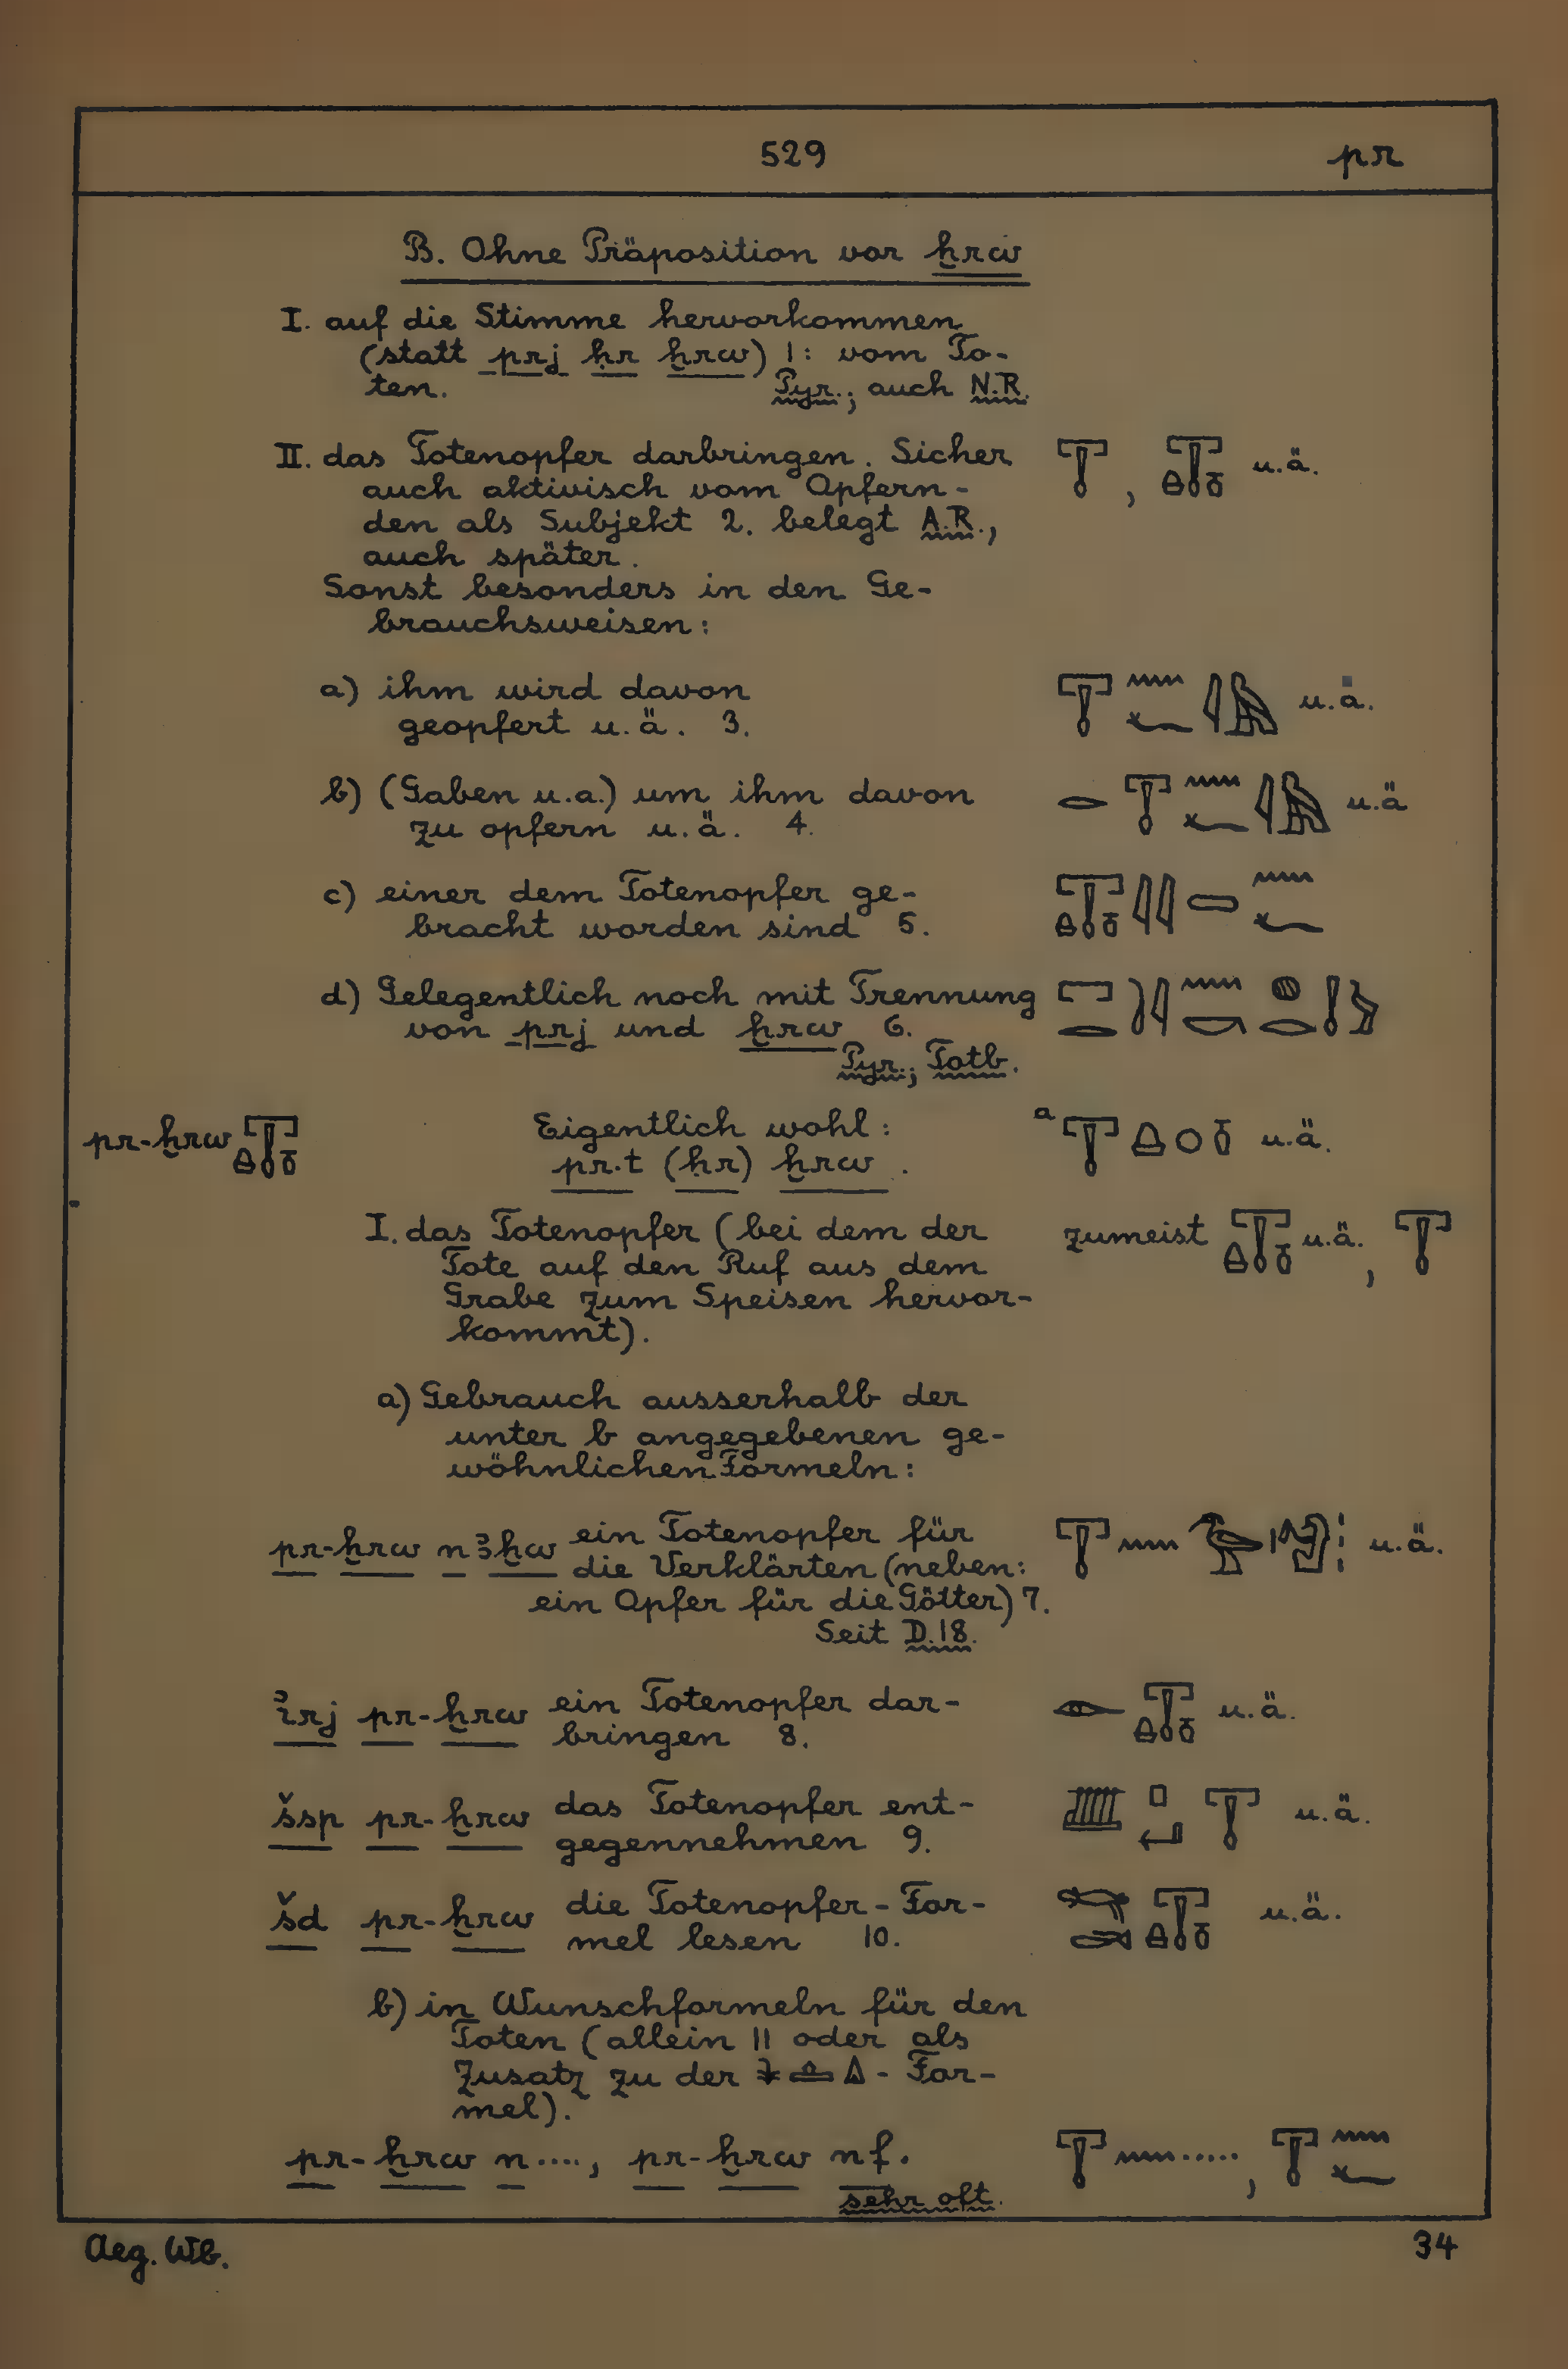 529 pr
B. Ohne Präposition vor ḫrw
I. auf die Stimme hervorkommen
(statt prj ḥr ḫrw) 1: vom To-
ten. Pyr.; auch N.R.
II. das Totenopfer darbringen. Sicher 𓉓, 𓉔 u.ä.
auch aktivisch vom Opfern-
den als Subjekt 2. belegt A.R.,
auch später.
Sonst besonders in den Ge-
brauchsweisen:
a) ihm wird davon u.ä.
geopfert u.ä. 3.
b) (Gaben u.a.) um ihm davon u.ä
zu opfern u.ä. 4.
c) einer dem Totenopfer ge-
bracht worden sind 5.
d) Gelegentlich noch mit Trennung
von prj und ḫrw 6.
Pyr.; Totb.
pr-ḫrw 𓉔 Eigentlich wohl: a u.ä.
pr.t (ḥr) ḫrw.
I. das Totenopfer (bei dem der zumeist 𓉔 u.ä., 𓉓
Tote auf den Ruf aus dem
Grabe zum Speisen hervor-
kommt).
a) Gebrauch ausserhalb der
unter b angegebenen ge-
wöhnlichen Formeln:
pr-ḫrw n ꜣḫw ein Totenopfer für u.ä.
die Verklärten (neben:
ein Opfer für die Götter) 7.
Seit D.18.
ı͗rj pr-ḫrw ein Totenopfer dar- 𓁹𓉔 u.ä.
bringen 8.
šsp pr-ḫrw das Totenopfer ent- u.ä.
gegennehmen 9.
šd pr-ḫrw die Totenopfer-For- u.ä.
mel lesen 10.
b) in Wunschformeln für den
Toten (allein 11 oder als
Zusatz zu der 𓇓𓊵𓏙 - For-
mel).
pr-ḫrw n...., pr-ḫrw nf. 𓉓𓈖....., 𓉓𓈖𓆑
sehr oft.
Aeg. Wb. 34